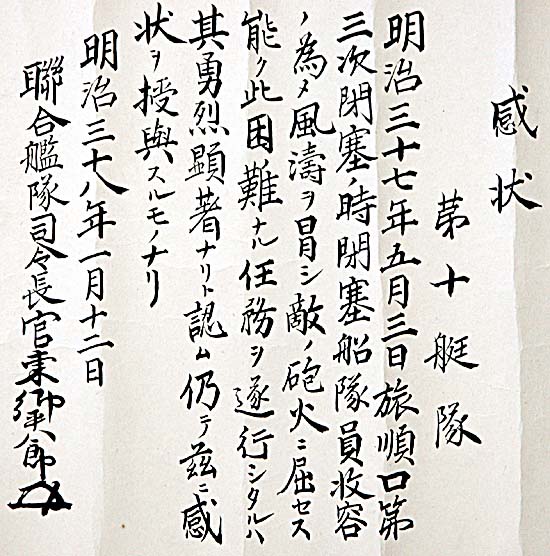 感状
第十艇隊
明治三十七年五月三日旅順口第
三次閉塞ノ時閉塞船隊員收容
ノ為メ風濤ヲ冒シ敵ノ砲火ニ屈セス
能ク此困難ナル任務ヲ遂行シタルハ
其勇烈顕著ナリト認ム仍テ茲ニ感
状ヲ授與スルモノナリ
明治三十八年一月十二日
聯合艦隊司令長官東郷平八郎